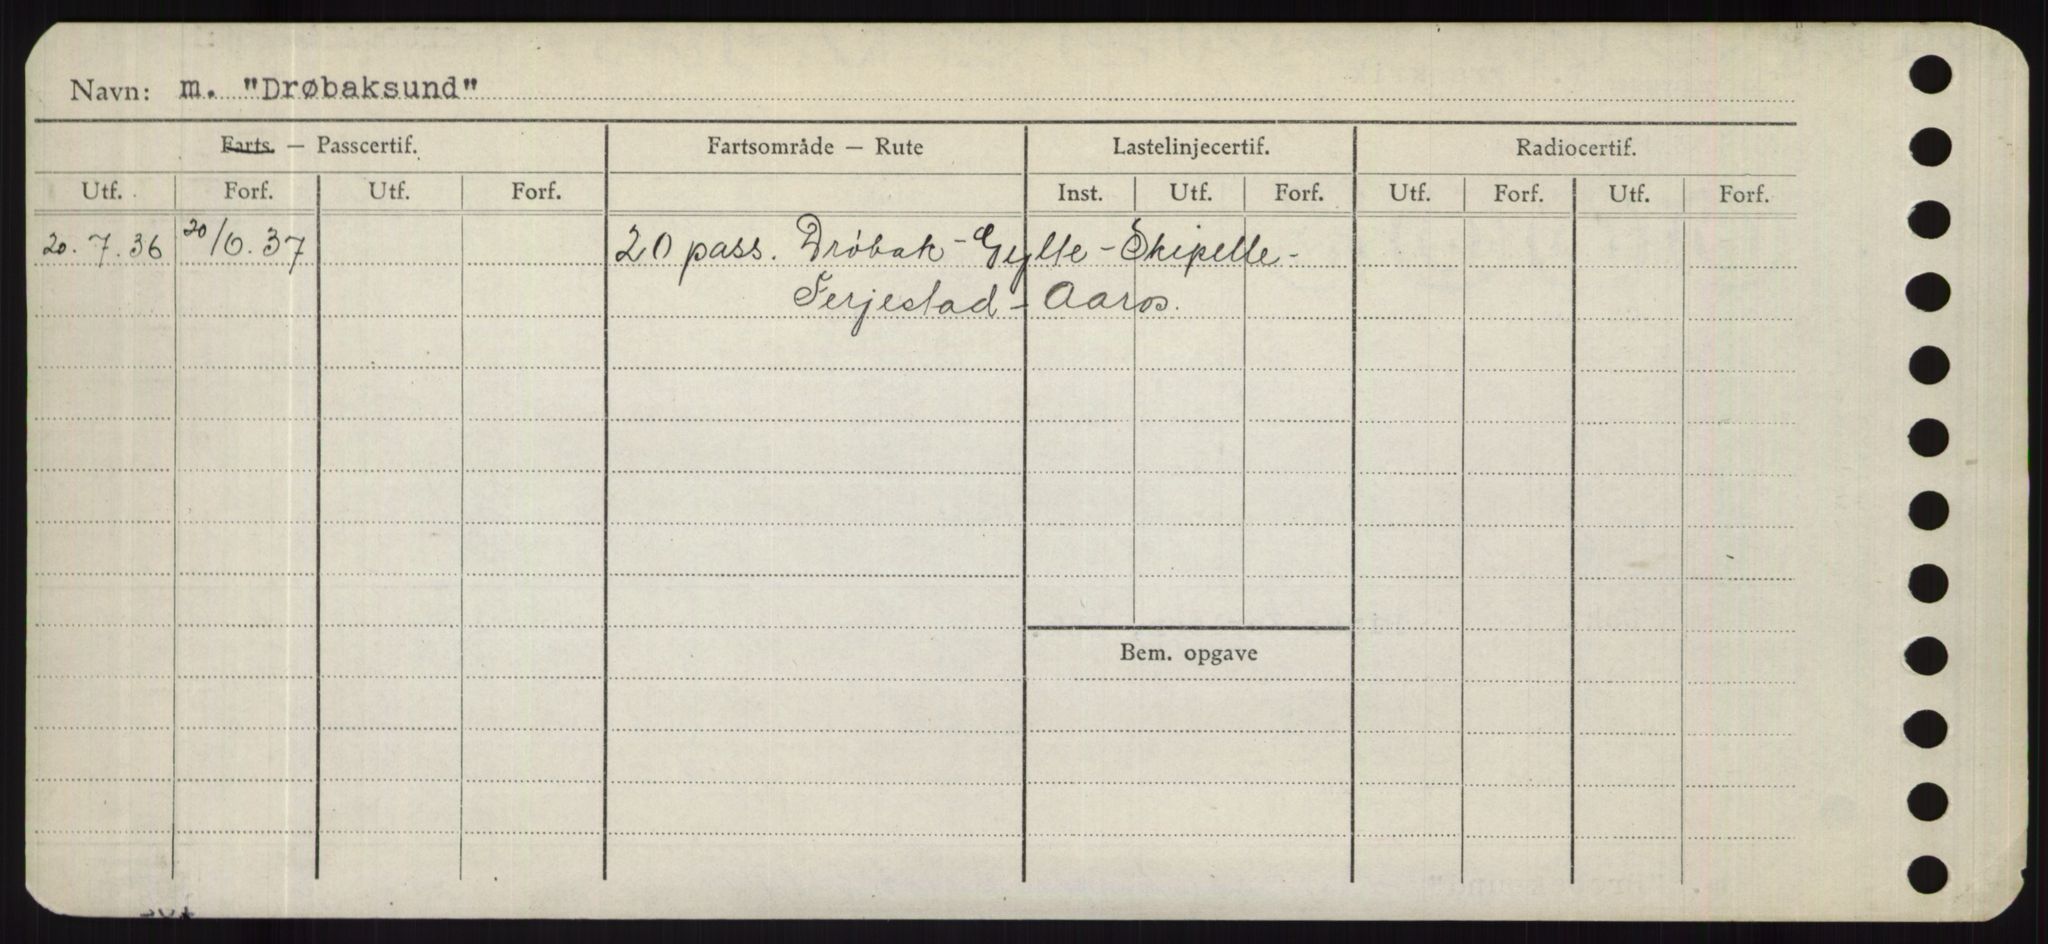 Navn: m. "Drøbaksund"
Farts. — Passcertif. Fartsområde — Rute Lastelinjecertif. Radiocertif.
Utf. Forf. Utf. Forf. Inst. Utf. Forf. Utf. Forf. Utf. Forf.
20.7.36 20/6.37 20 pass. Drøbak - Gylte - Skipelle -
Ferjestad - Aaros.
Bem. opgave